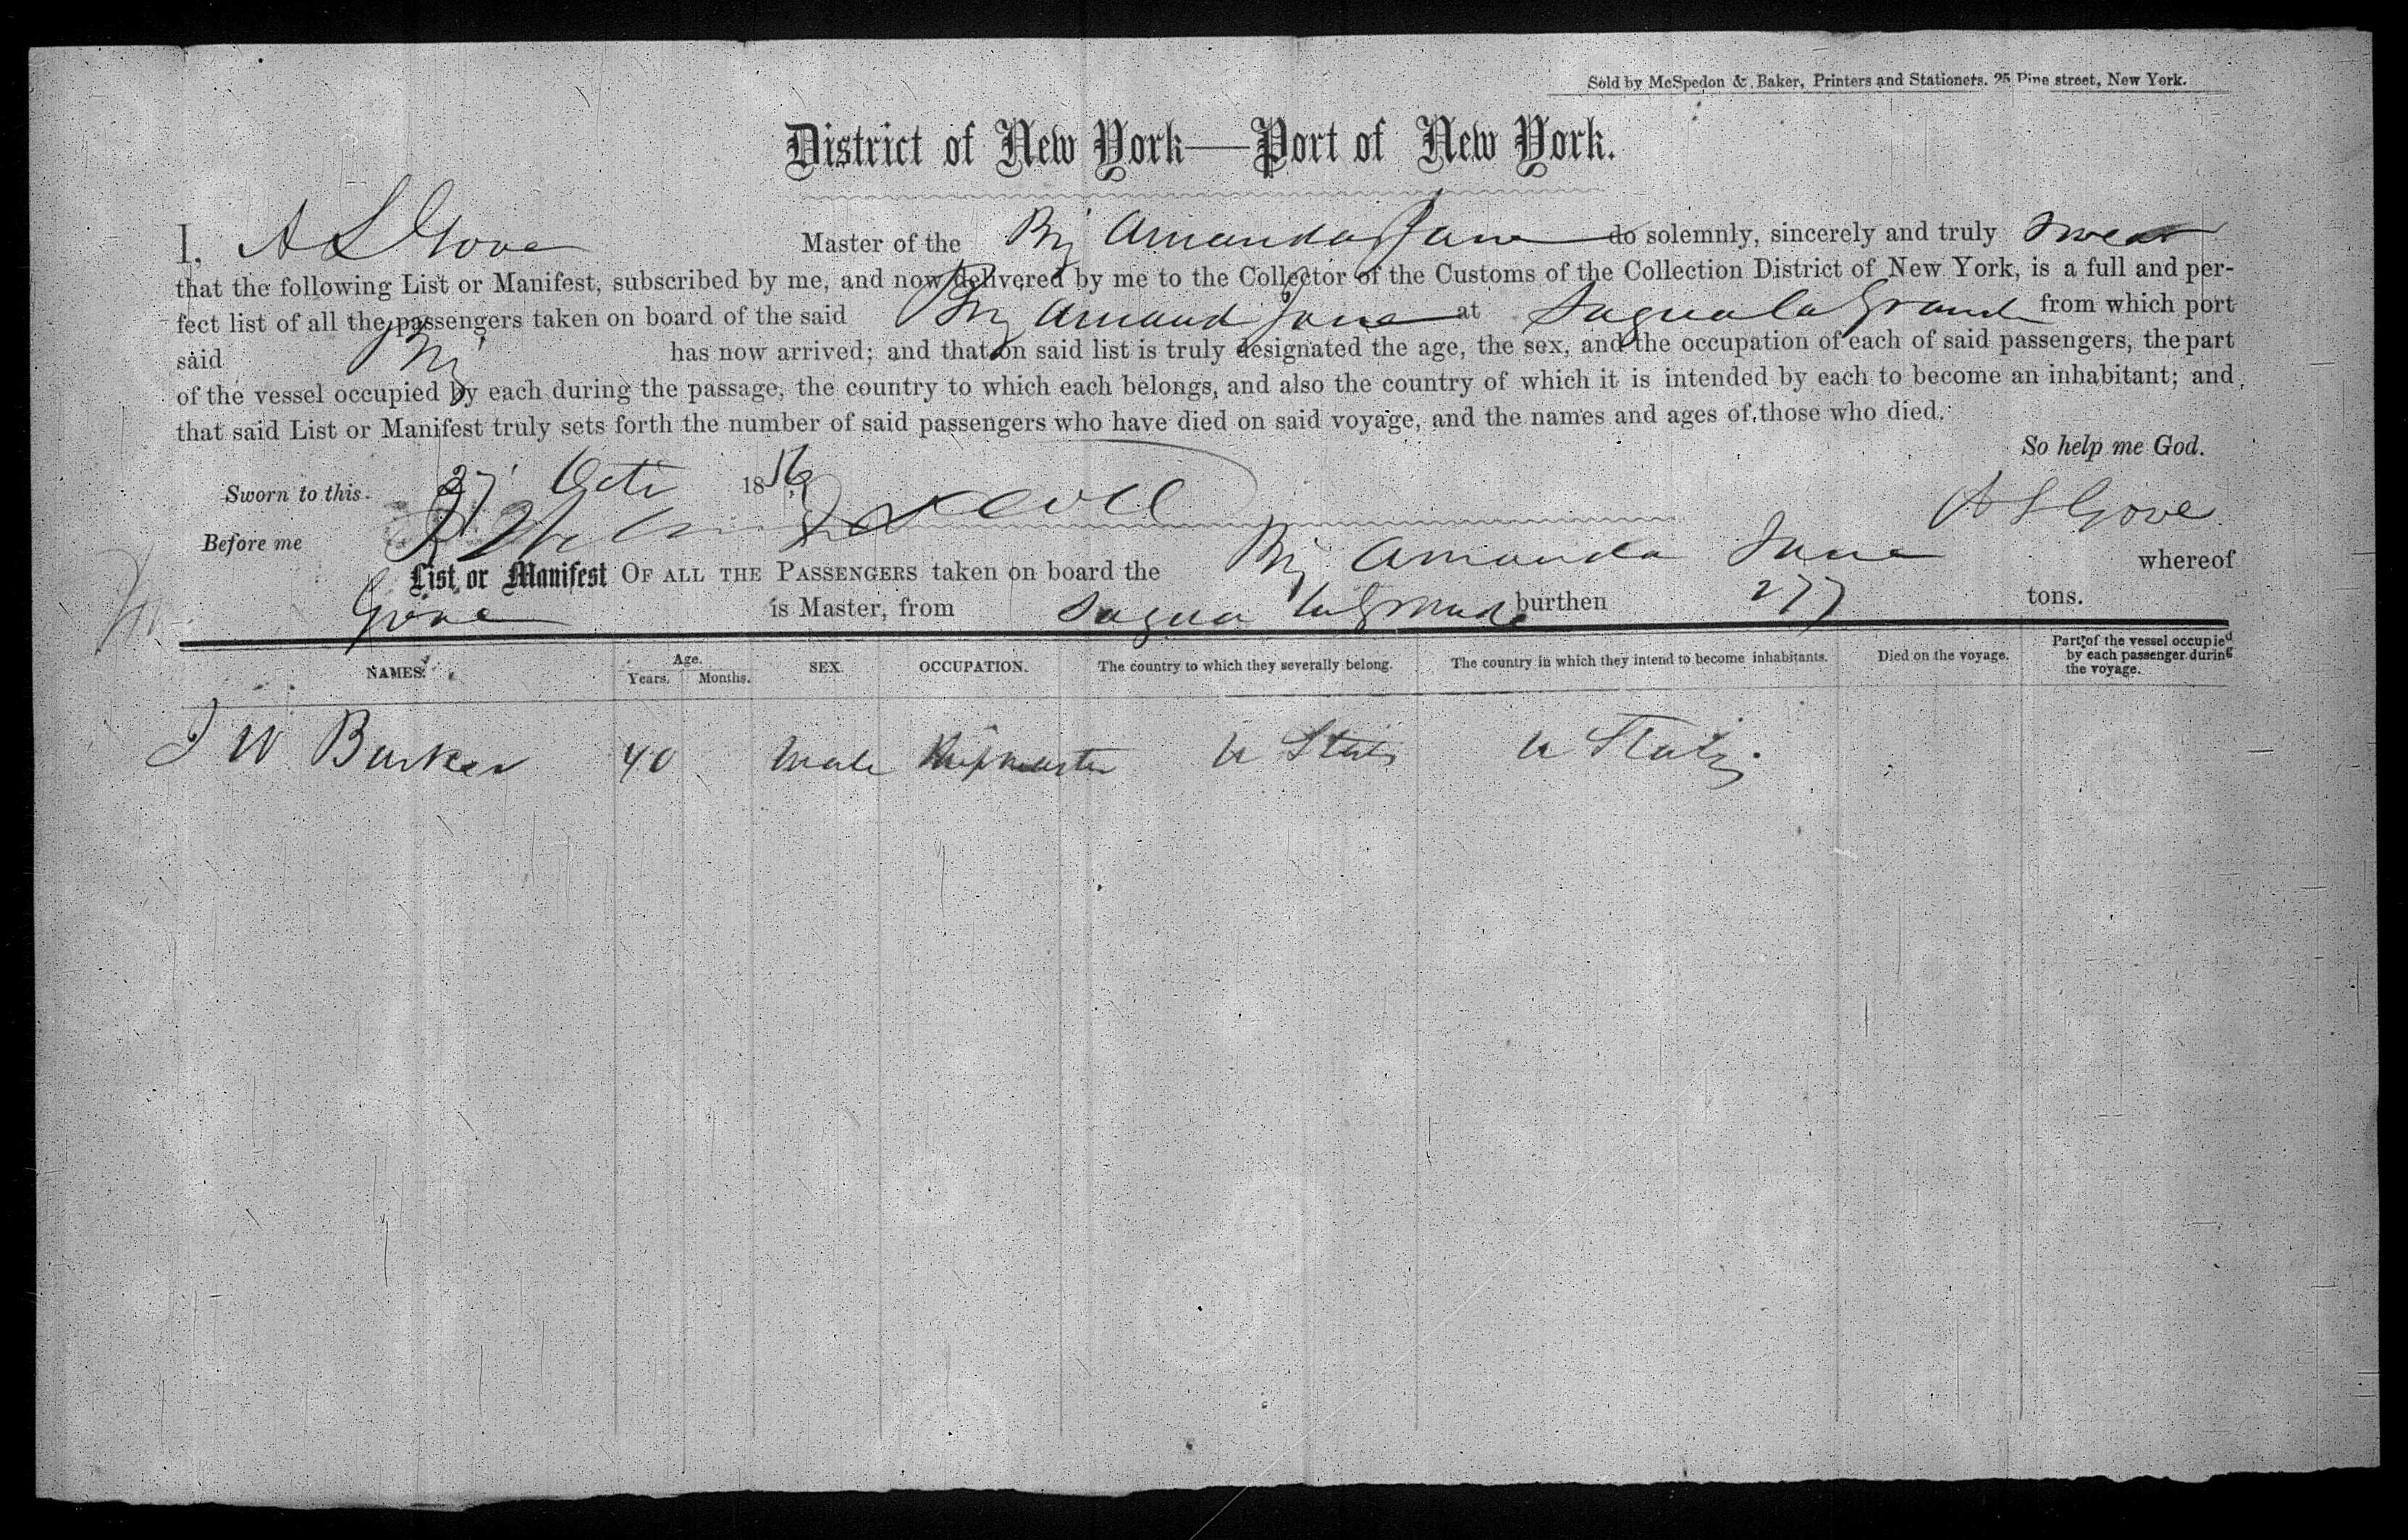 Sold by McSpedon & Baker, Printers and Stationers. 25 Pine street, New York.
District of New York—Port of New York.
I, A L Gove Master of the Brig Amanda Jane do solemnly, sincerely and truly swear
that the following List or Manifest, subscribed by me, and now delivered by me to the Collector of the Customs of the Collection District of New York, is a full and per-
fect list of all the passengers taken on board of the said Brig Amand Jane at Sagua la Grand from which port
said Brig has now arrived; and that on said list is truly designated the age, the sex, and the occupation of each of said passengers, the part
of the vessel occupied by each during the passage, the country to which each belongs, and also the country of which it is intended by each to become an inhabitant; and
that said List or Manifest truly sets forth the number of said passengers who have died on said voyage, and the names and ages of those who died.
So help me God.
Sworn to this 27 Octr 1856
A L Gove
Before me
List or Manifest OF ALL THE PASSENGERS taken on board the Brig Amanda Jane whereof
Gove is Master, from Sagua la Grande burthen 277 tons.
NAMES. Age. Years. Months. SEX. OCCUPATION. The country to which they severally belong. The country in which they intend to become inhabitants. Died on the voyage. Part of the vessel occupied by each passenger during the voyage.
J W Barker 40 Male Shipmaster U States U States